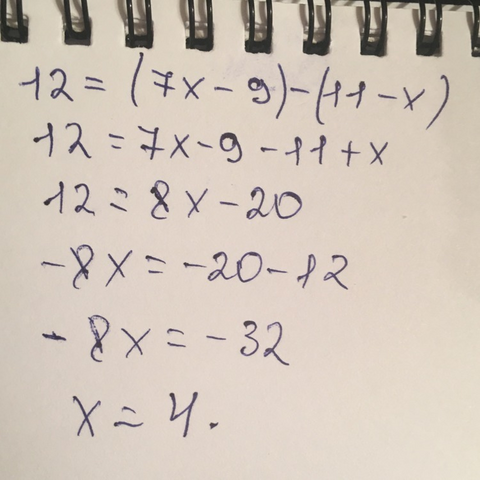 12 = (7x - 9) - (11 - x)
12 = 7x - 9 - 11 + x
12 = 8x - 20
-8x = -20 - 12
-8x = -32
x = 4.